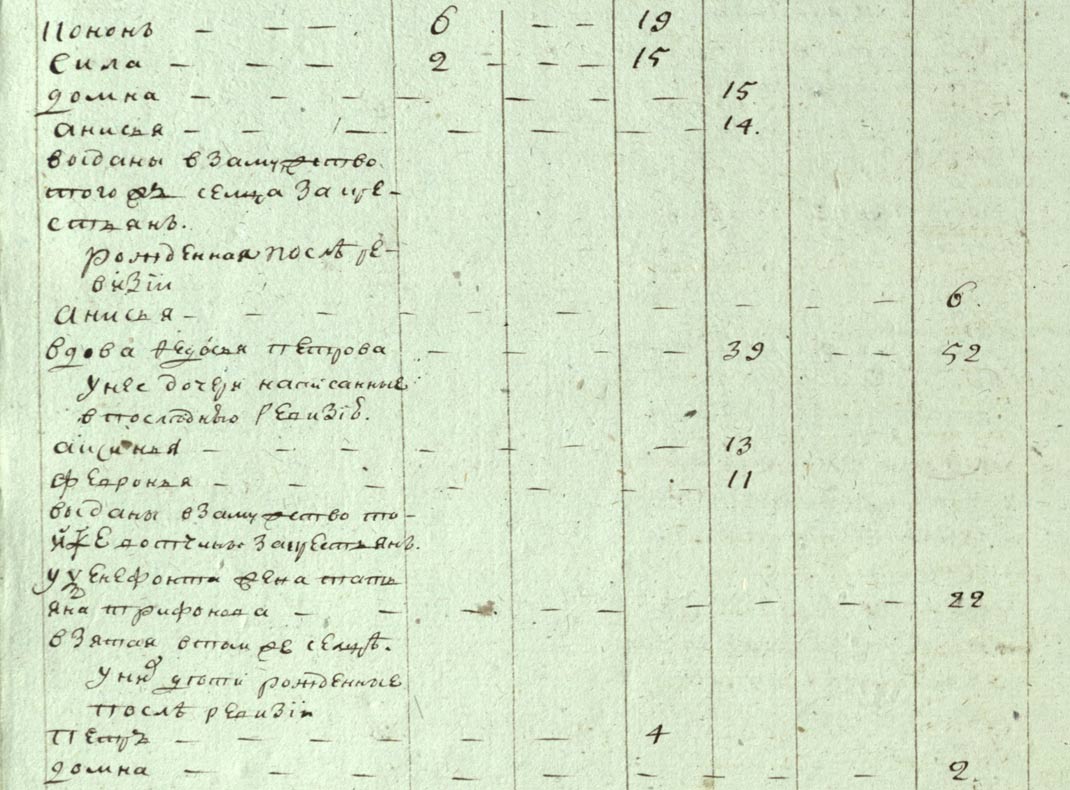 Кононъ — — — 6 — — 19
Сила — — — 2 — — — 15
домна — — — — — — — 15
анисья — — — — — — — 14.
выданы взамужество
того жъ селца за кре-
стьянъ.
рожденная послѣ ре-
визіи
Анисья — — — — — — — — — 6.
вдова Федосья Петрова — — — — 39 — — 52
унее дочери написанные
в последнюю ревизію.
аксинья — — — — — — 13
Февронья — — — — — — 11
выданы взамужество то-
йже вотчины за крестьянъ.
у ксенефонта жена тать
яна трифонова — — — — — — — — — 22
взятая втом же селцѣ.
у них дети рожденные
послѣ ревизіи
Петръ — — — — — — 4
домна — — — — — — — — — 2.